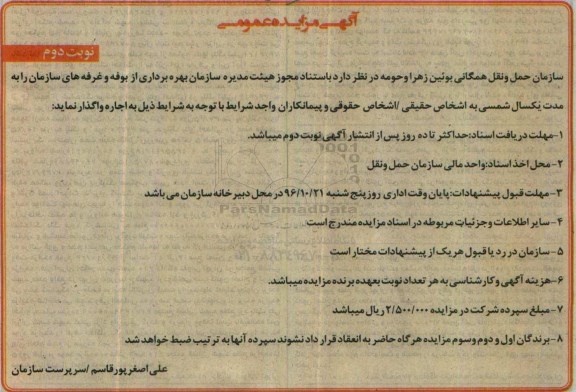 آگهی مزایده عمومی
نوبت دوم
سازمان حمل ونقل همگانی بوئین زهرا وحومه در نظر دارد باستناد مجوز هیئت مدیره سازمان بهره برداری از بوفه و غرفه های سازمان را به
مدت یکسال شمسی به اشخاص حقیقی /اشخاص حقوقی و پیمانکاران واجد شرایط با توجه به شرایط ذیل به اجاره واگذار نماید:
۱-مهلت دریافت اسناد:حداکثر تا ده روز پس از انتشار آگهی نوبت دوم میباشد.
۲-محل اخذ اسناد:واحد مالی سازمان حمل ونقل
۳-مهلت قبول پیشنهادات:پایان وقت اداری روز پنج شنبه ۹۶/۱۰/۲۱ در محل دبیرخانه سازمان می باشد
ParsNamadData
۴-سایر اطلاعات وجزئیات مربوطه در اسناد مزایده مندرج است
۵-سازمان در رد یا قبول هر یک از پیشنهادات مختار است
۶-هزینه آگهی و کارشناسی به هر تعداد نوبت بعهده برنده مزایده میباشد.
۷-مبلغ سپرده شرکت در مزایده ۲/۵۰۰/۰۰۰ ریال میباشد
۸-برندگان اول و دوم وسوم مزایده هر گاه حاضر به انعقاد قرار داد نشوند سپرده آنها به ترتیب ضبط خواهد شد
علی اصغر پور قاسم /سرپرست سازمان